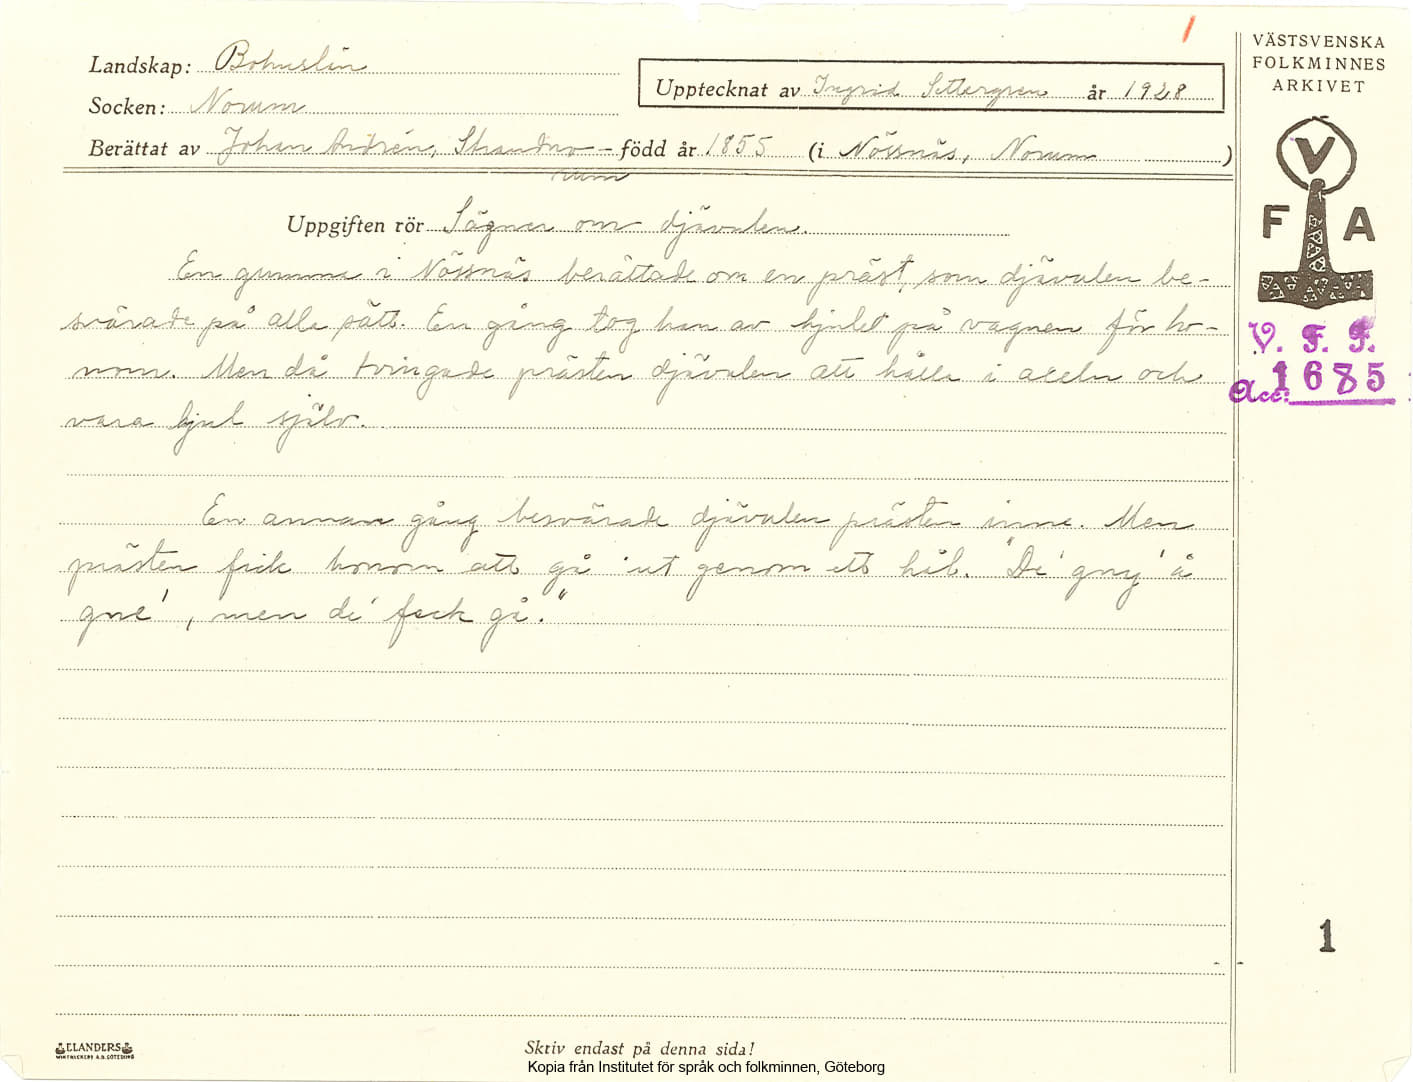 Landskap: Bohuslän
Socken: Norum
Upptecknat av Ingrid Settergren år 1928
Berättat av Johan Andrén, Strandno- född år 1855 (i Nössnäs, Norum )
rum
Uppgiften rör Sägner om djävulen.
En gumma i Nössnäs berättade om en präst, som djävulen be-
svärade på alla sätt. En gång tog han av hjulet på vagnen för ho-
nom. Men då tvingade prästen djävulen att hålla i axeln och
vara hjul själv.
En annan gång besvärade djävulen prästen inne. Men
prästen fick honom att gå ut genom ett hål. "De' gny' å
gne', men de' feck gå."
VÄSTSVENSKA
FOLKMINNES
ARKIVET
V
F A
V. F. F.
Acc: 1685
1
ELANDERS
Skriv endast på denna sida!
Kopia från Institutet för språk och folkminnen, Göteborg